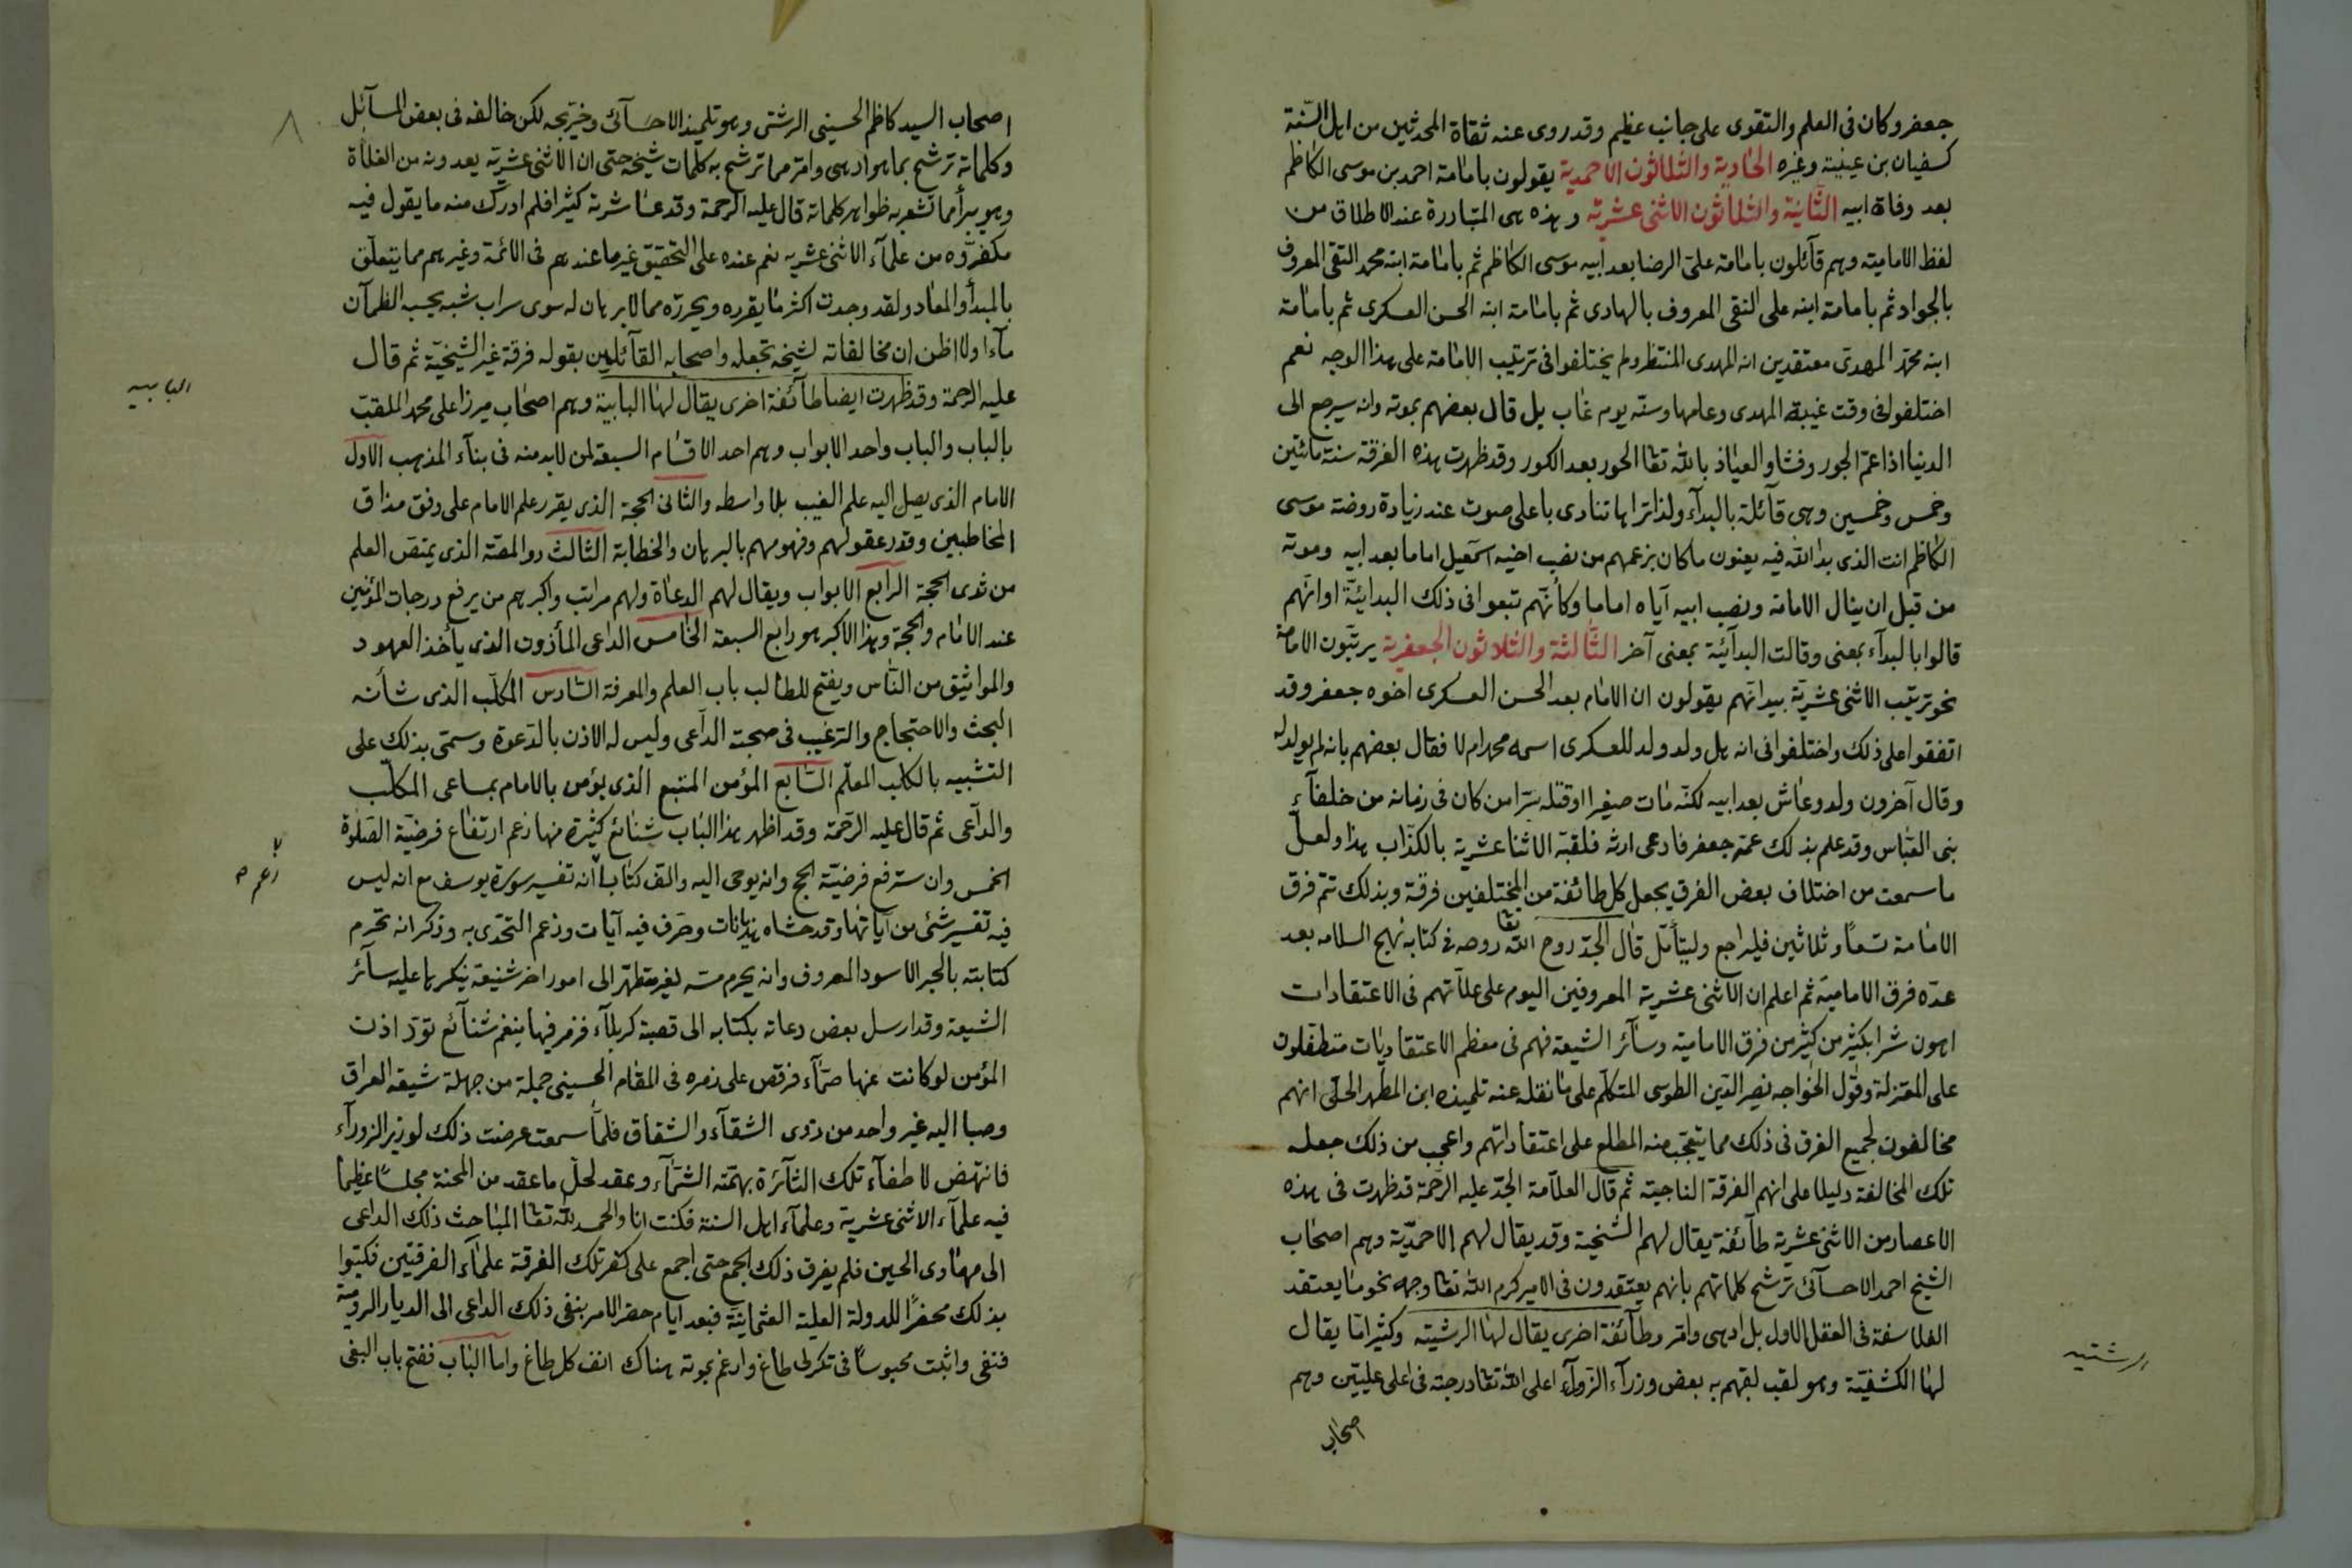 جعفر وكان فى العلم والتقوى على جانب عظيم وقد روى عنه ثقاة المحدثين من اهل السّنة
كسفيان بن عيينة وغيره الحادية والثلاثون الاحمدية يقولون بامامة احمد بن موسى الكاظم
بعد وفاة ابيه الثانية والثلاثون الاثنى عشرية وهذه هى المتبادرة عند الاطلاق من
لفظ الامامية وهم قآئلون بامامة على الرضا بعد ابيه موسى الكاظم ثم بامامة ابنه محمد التقى المعروف
بالجواد ثم بامامة ابنه على النقى المعروف بالهادى ثم بامامة ابنه الحسن العسكرى ثم بامامة
ابنه محمد المهدى معتقدين انه المهدى المنتظر ولم يختلفوا فى ترتيب الامامة على هذا الوجه نعم
اختلفوا فى وقت غيبة المهدى وعامها وسنه يوم غاب بل قال بعضهم بموته وانه سيرجع الى
الدنيا اذا عمّ الجور وفشا والعياذ بالله تعا الحور بعد الكور وقد ظهرت هذه الفرقة سنة مائتين
وخمس وخمسين وهى قآئلة بالبدآء ولذا تراها تنادى باعلى صوت عند زيادة روضة موسى
الكاظم انت الذى بدا لله فيه يعنون ما كان بزعمهم من نصب اخيه اسمعيل اماما بعد ابيه وموته
من قبل ان ينال الامامة ونصب ابيه آياه اماما وكأنّهم تبعوا فى ذلك البدائيّة او انّهم
قالوا بالبدآء بمعنى وقالت البدآئيّة بمعنى آخر الثّالثة والثلاثون الجعفرية يرتّبون الامامة
نحو ترتيب الاثنى عشريّة بيد انّهم يقولون ان الامام بعد الحسن العسكرى اخوه جعفر وقد
اتفقوا على ذلك واختلفوا فى انه هل ولد ولد للعسكرى اسمه محمد ام لا فقال بعضهم بانه لم يولد له
وقال آخرون ولد وعاش بعد ابيه لكنّه مات صغيرا او قتله سرّا من كان فى زمانه من خلفآء
بنى العبّاس وقد علم بذلك عمّه جعفر فادعى ارثه فلقبة الاثنا عشرية بالكذّاب هذا ولعلّ
ما سمعت من اختلاف بعض الفرق يجعل كل طائفة من المختلفين فرقة وبذلك تتمّ فرق
الامامة تسعًا وثلاثين فليراجع وليتأمّل قال الجدّ روح الله تعا روحه فى كتابه نهج السلامه بعد
عدّه فرق الامامية ثم اعلم ان الاثنى عشرية المعروفين اليوم على علاّتهم فى الاعتقادات
اهون شرا بكثير من كثير من فرق الامامية وسآئر الشيعة فهم فى معظم الاعتقاديات متطفلون
على المعتزلة وقول الخواجه نصير الدّين الطوسى المتكلّم على ما نقله عنه تلميذه ابن المطهر الحلّى انهم
مخالفون لجميع الفرق فى ذلك مما يتعجّب منه المطلع على اعتقاداتهم واعجب من ذلك جعله
تلك المخالفة دليلا على انهم الفرقة الناجية ثم قال العلاّمة الجدّ عليه الرّحمة قد ظهرت فى هذه
الاعصار من الاثنى عشرية طآئفة يقال لهم الشّيخية وقد يقال لهم الاحمديّة وهم اصحاب
الشيخ احمد الاحسآئى ترشح كلماتهم بانهم يعتقدون فى الامير كرم الله تعا وجهه نحو ما يعتقد
الفلاسفة فى العقل الاول بل ادهى وامر وطآئفة اخرى يقال لها الرشتيه وكثيرا ما يقال
لها الكشفيّة وهو لقب لقبهم به بعض وزرآء الزّورآء اعلى الله تعا درجته فى اعلى علييّن وهم
اصحاب
الرشتيه
٨
اصحاب السيد كاظم الحسينى الرشتى وهو تلميذ الاحسآئى وخريجه لكن خالفه فى بعض المسآئل
وكلماته ترشح بما هو ادهى وامر مما ترشح به كلمات شيخه حتى ان الاثنى عشريّة يعدونه من الغلاة
وهو يبرأ مما تشعر به ظواهر كلماته قال عليه الرحمة وقد عاشرته كثيرا فلم ادرك منه ما يقول فيه
مكفروه من علمآء الاثنى عشريه نعم عنده على التحقيق غير ما عندهم فى الائمة وغيرهم مما يتعلّق
بالمبدأ والمعاد ولقد وجدت اكثر ما يقرره ويحرره مما لا برهان له سوى سراب شبه يحسبه الظمآن
مآءا ولا اظن ان مخالفاته لشيخه تجعله واصحابه القآئلين بقوله فرقة غير الشيخيّة ثم قال
عليه الرحمة وقد ظهرت ايضا طآئفة اخرى يقال لها البابية وهم اصحاب ميرزا على محمد الملقب
بالباب والباب واحد الابواب وهم احد الاقسام السبعة لمن لا بد منه فى بنآء المذهب الاول
الامام الذى يصل اليه علم الغيب بلا واسطه والثانى الحجة الذى يقرر علم الامام على وفق مذاق
المخاطبين وقدر عقولهم وفهومهم بالبرهان والخطابة الثالث ذو المصّة الذى يمتصّ العلم
من ثدى الحجة الرابع الابواب ويقال لهم الدعاة ولهم مراتب واكبرهم من يرفع درجات المؤمنين
عند الامام والحجة وهذا الاكبر هو رابع السبعة الخامس الداعى المأذون الذى ياخذ العهود
والمواثيق من النّاس ويفتح للطالب باب العلم والمعرفة السّادس المكلّب الذى شأنه
البحث والاحتجاج والترغيب فى صحبة الدآعى وليس له الاذن بالدّعوة وسمّى بذلك على
التشبيه بالكلب المعلّم السّابع المؤمن المتبع الذى يؤمن بالامام بمساعى المكلّب
والدآعى ثم قال عليه الرّحمة وقد اظهر هذا الباب شنائع كثيرة منها زعم ارتفاع فرضيّة الصّلوة
الخمس وان سترفع فرضيّة الحج وانه يوحى اليه والف كتابا انه تفسير سورة يوسف مع انه ليس
فيه تفسير شئ من آياتها وقد حشاه هذيانات وحرّف فيه آيات وزعم التحدّى به وذكر انه تحرم
كتابته بالحبر الاسود المعروف وانه يحرم مسّه لغير متطهّر الى امور اخر شنيعة ينكرها عليه سآئر
الشيعة وقد ارسل بعض دعاته بكتابه الى قصبة كربلآء فزمر فيها بنغم شنآئع تودّ اذن
المؤمن لو كانت عنها صمّآء فرقص على زمره فى المقام الحسينى جملة من جهلة شيعة العراق
وصبا اليه غير واحد من ذوى الشقآء والشقاق فلمّا سمعت عرضت ذلك لوزير الزورآء
فانتهض لاطفآء تلك النّآئرة بهمّته الشمّآء وعقد لحلّ ما عقد من المحنة مجلسًا عظيما
فيه علمآء الاثنى عشرية وعلمآء اهل السنة فكنت انا والحمد لله تعا المباحث ذلك الداعى
الى مهاوى الحين فلم يفرق ذلك الجمع حتى اجمع على كفر تلك الفرقة علمآء الفرقتين فكتبوا
بذلك محضرًا للدولة العلية العثمانيّة فبعد ايام حضر الامر بنفى ذلك الداعى الى الديار الروميّة
فنفى واثبت محبوسًا فى تكرلى طاغ وارغم بموته هناك انف كل طاغ واما الباب ففتح باب البغى
البابيه